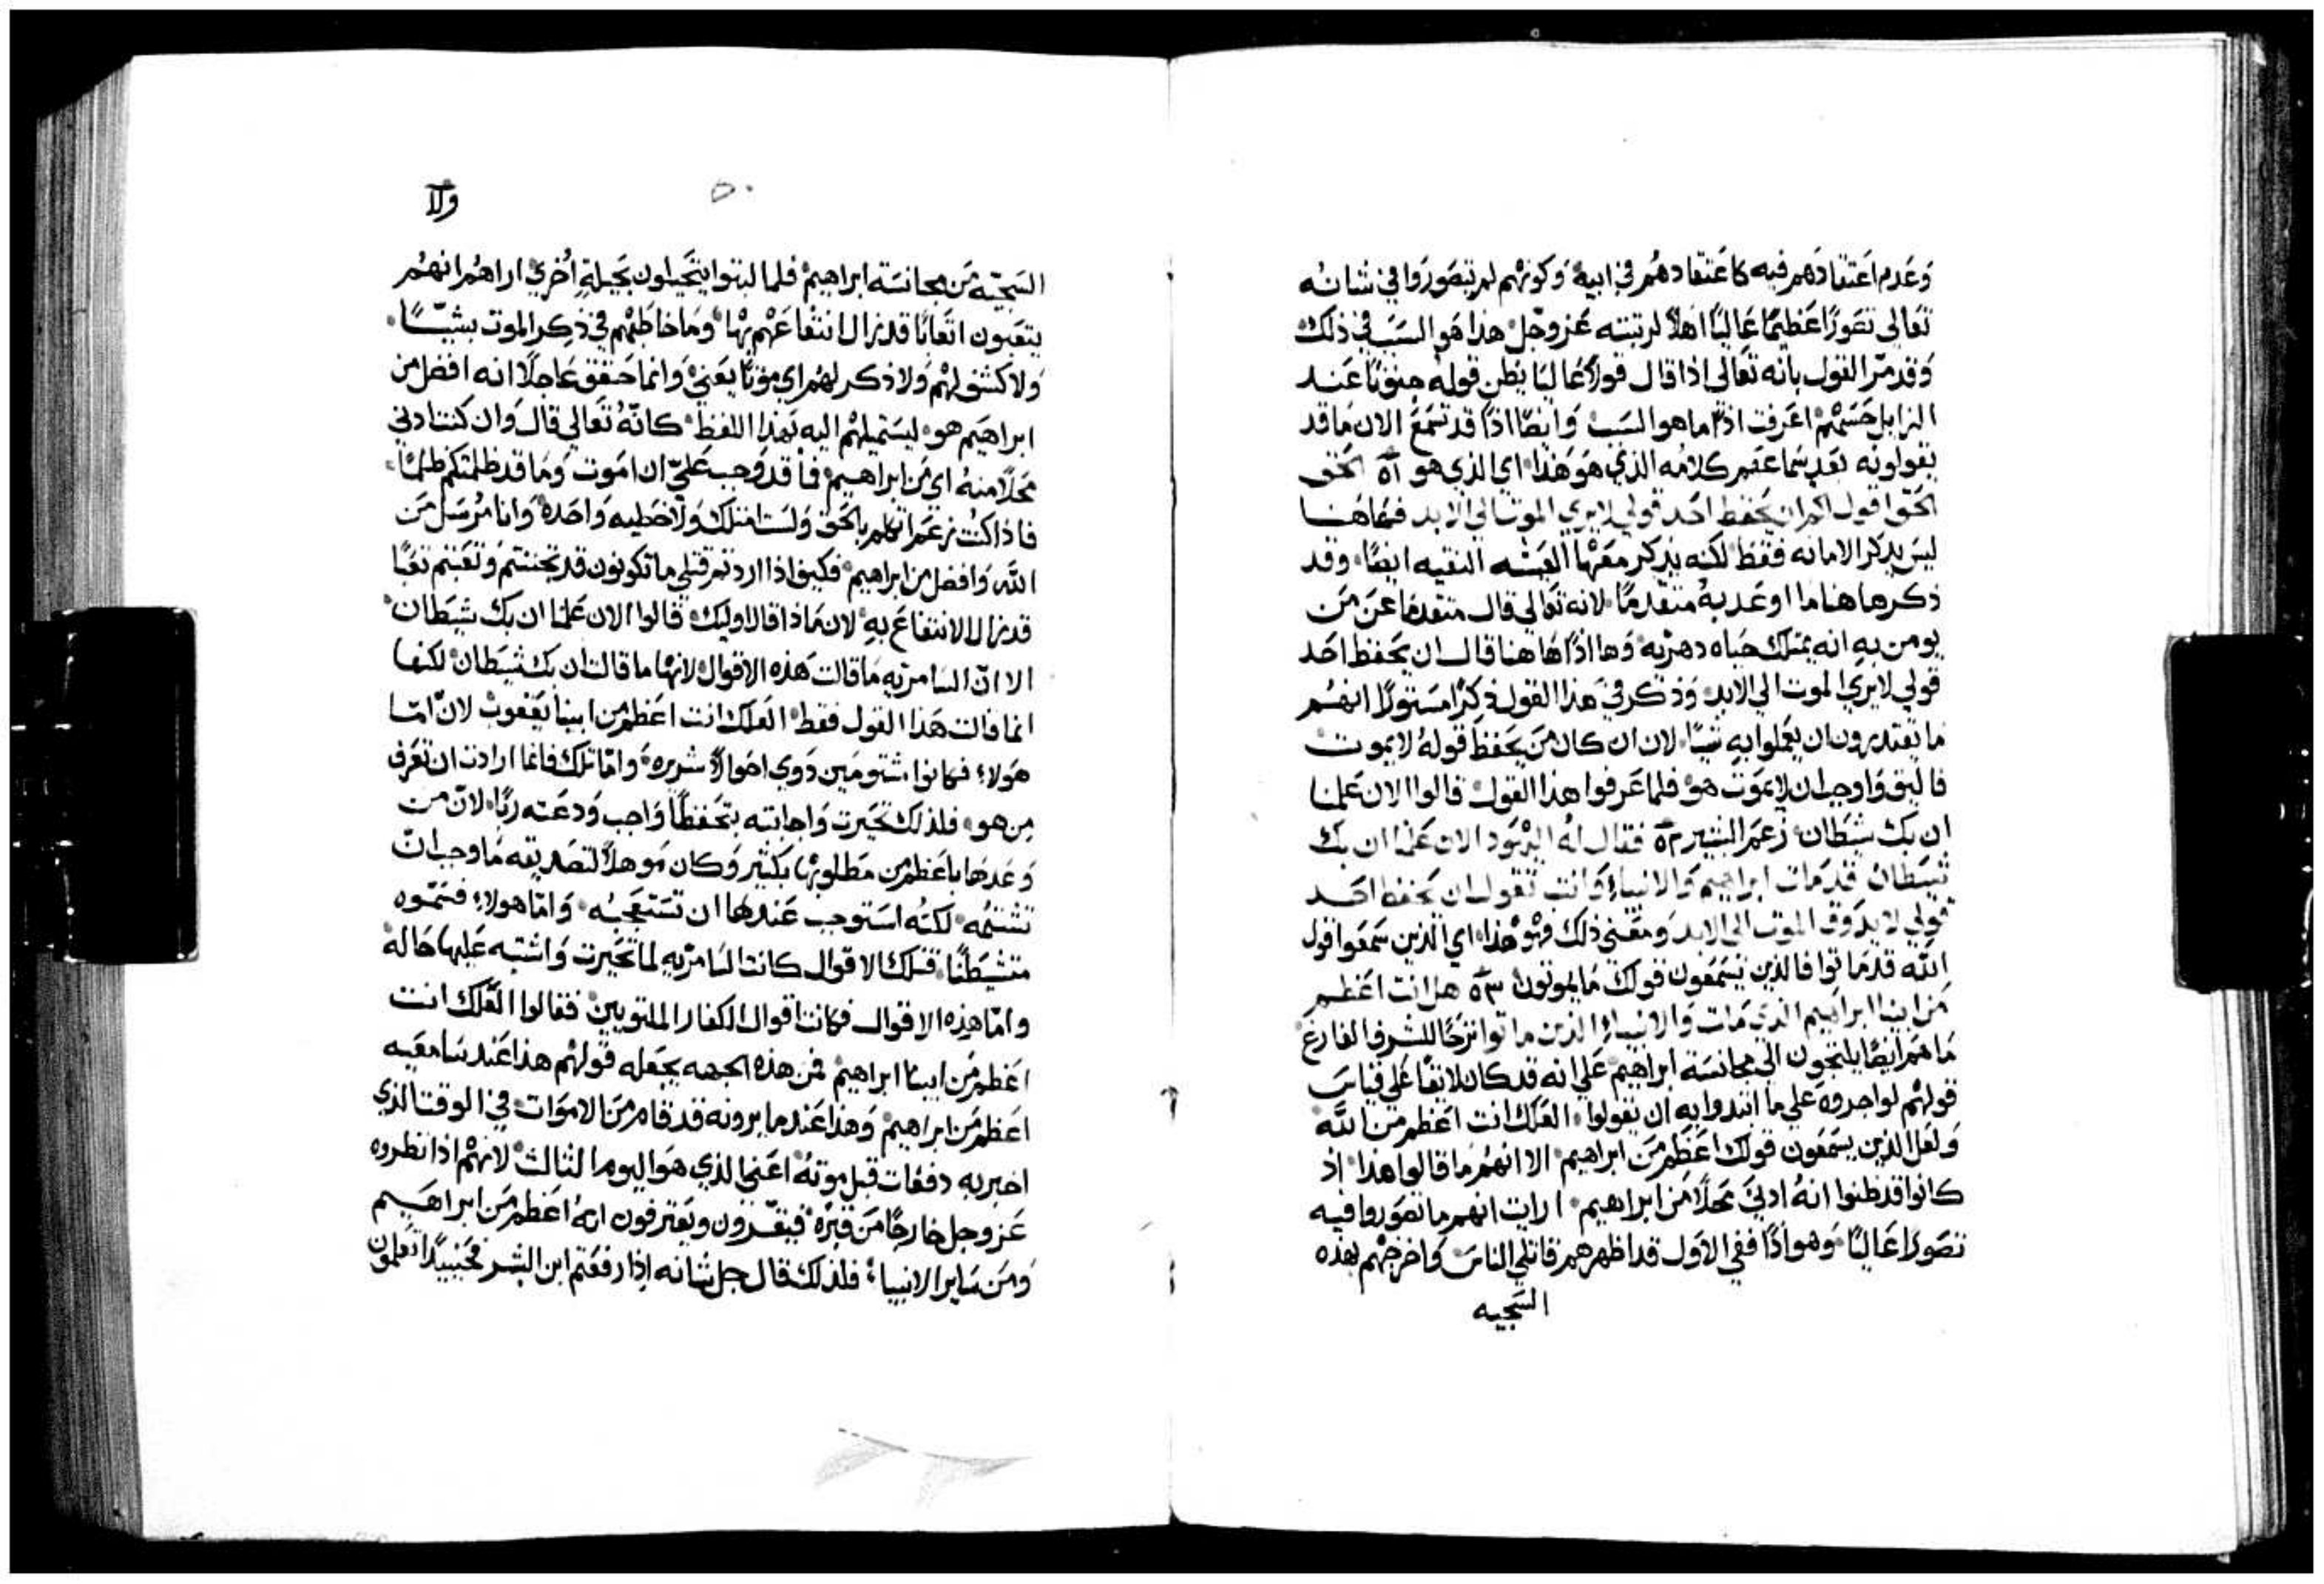 وَعَدم اعَتقادهم فيه كاعَتقادهُم في ابيهْ وَكونهْم لم يتصَوروا في شانه
تعَالى تصَورًا عَظيمًا عَاليًا اهلًا لرتبته عَز وجَلْ هذا هَو السَبَب في ذلك
وَقد مرّ القول بانه تعَالى اذا قال قولًا عَاليًا يظن قولهْ جنونًا عَند
الزابل حَسَهمْ اعَرفت اذًا ما هو السَببْ وَايضًا اذًا قد تسَمعَ الان مَا قد
يقولونه بَعَد سَماعَهم كلامُه الذي هَو هَذا اي الذي هو ٥١ الحَق
الحَق اقول لكم ان يحَفظ احَد قولي لا يري الموت الي الابد فهَاهنا
ليسَ يذكر الامانه فقط لكنه يذكر مَعَها العَيشه النقيه ايضًا وَقد
ذكرها هنا ما اوعَد بهْ متقدمًا لانه تعَالى قال متقدمًا عَن مَن
يومن به انه يمتلك حَياه دهريه وَها اذًا هَاهنا قال ان يحَفظ احَد
قولي لا يري الموت الي الابد وَذكر في هَذا القول ذكرًا مسَتورًا انهُم
ما يقتدرون ان يعَملوا به شيًا لان ان كان مَن يحَفظ قولهُ لا يموت
فاليق وَاوجب ان لا يموَت هو فلما عَرفوا هذا القول قالوا الان عَلمنا
ان بك شيَطان زعَم البشير ٥٢ فقال لهُ اليهَود الان عَلمنا ان بك
شيَطان قد مَات ابراهيم وَالانبياء وَانت تقول ان يحَفظ احَد
قولي لا يذَوق الموت الي الابد وَمعَني ذلك فهَو هَذا اي الذين سَمعَوا قول
الله قد مَاتوا فالذين يسَمعَون قولك مَا يموتون ٥٣ هل انت اعَظم
مَن ابينا ابراهيم الذي مَات وَالانبياء الذين ماتوا نزحًا للشرف الفارغ
مَا هَم ايضًا يلتجون الي مجانسَة ابراهيم عَلي انه قد كان لايقًا عَلي قياسَ
قولهْم لو اجروه عَلي ما ابتدوا به ان يقولوا العَلك انت اعَظم مَن الله
وَلعَل الذين يسَمعَون قولك اعَظم مَن ابراهيم الا انهُم ما قالوا هذا اذ
كانوا قد ظنوا انهُ ادنيَ مَحلًا مَن ابراهيم ارايت انهم ما تصَوروا فيه
تصَورًا عَاليًا وَهو اذًا ففي الاول قد اظهرهم قاتلي الناسَ وَاخرجهْم بهذه
السَجيه
ولا
٥٠
السَجيّه مَن مجانسَة ابراهيمْ فلما لبثوا يتحَيلون بحَيلةٍ اُخريْ اراهُم انهُم
يتعَبون اتعَابًا قد زال انتفاعَهْم بهْا ومَا خاطبَهْم في ذِكر الموت بشيًا
وَلا كشف لهُمْ وَلا ذكر لهُم اي موتًا يعَنيْ وَانما حَقق عَاجلًا انه افضل من
ابراهيم هو ليسَتميلهْم اليه بهَذا اللفظْ كانّهُ تعَالي قال وَان كنت ادني
مَحلًا منهُ اي مَن ابراهيمْ فما قد وَجب عَليّ ان امَوت وَمَا قد ظلمتكم ظلمًا
فاذا كنُت زعَم اتكلم بالحَق وَلسَت امتلك وَلا خطيه وَاحَده وَانا مُرسَل مَن
الله وَافضل من ابراهيمْ فكيف اذا اردتم قتلي ما تكونون قد تجننتم وَتعَبتم تعَبًا
قد زال الانتفاعَ بهِ لان مَاذا قال اوليك قالوا الان عَلمنا ان بك شيَطان
الا انّ السَامريه مَا قالت هَذه الاقوال لانهْا ما قالت ان بك شيَطان لكنها
انما قالت هَذا القول فقط العَلك انت اعَظم من ابينا يعَقوبْ لانّ امّا
هَولاء فكانوا شتومَين ذوي احَوالًا شريره وَامّا تلك فانما ارادت ان تعَرف
من هو فلذلك تحَيرت وَاجابته بتحَفظًا وَاجب وَدعَته ربًا لانّ من
وَعَدهَا باعَظم من مَطلوبهْا بكثير وَكان مَوهلًا لتصَديقه مَا وجب ان
تشتمُه لكنهُ اسَتوجب عَندها ان تسَتعَجبهُ وَامّا هولاء فسَمّوه
متشيَطنًا فتلك الاقوال كانت السَامريّه لما تحَيرت وَاشتبه عَليها حَاله
وامّا هذِه الاقوال فكانت اقوال الكفار الملتويينْ فقالوا العَلك انت
اعَظم مَن ابينا ابراهيمْ فمن هذه الجهه يجعَله قولهْم هذا عَند سَامعَيه
اعَظم مَن ابراهيمْ وَهذا عَندما يرونه قد قام مَن الامَوات في الوقت الذي
اخبر به دفعَات قبل موتهُ اعَني الذي هَو اليوم الثالث لانهْم اذا نظروه
عَز وجل خارجًا مَن قبرهْ فيقرّون وَيعَترفون انهُ اعَظم مَن ابراهيم
وَمن سَاير الانبياء فلذلك قال جل شانه اذا رفعَتم ابن البشر فحَينيذًا تعَلمون